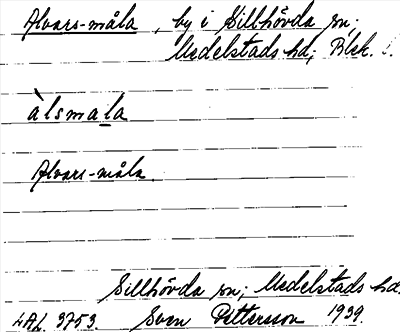 Alvars-måla, by i Sillhövda sn;
Medelstads hd; Blek. l.
àlsmala
Alvars-måla.
Sillhövda sn; Medelstads hd.
LAL. 3753. Sven Pettersson 1939.